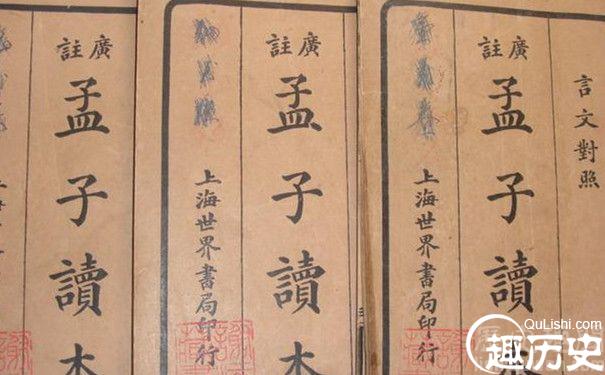 言文對照
廣註
孟子讀本
上海世界書局印行
廣註
孟子讀本
上海世界書局印行
廣註
孟子讀本
QuLishi.com
趣历史